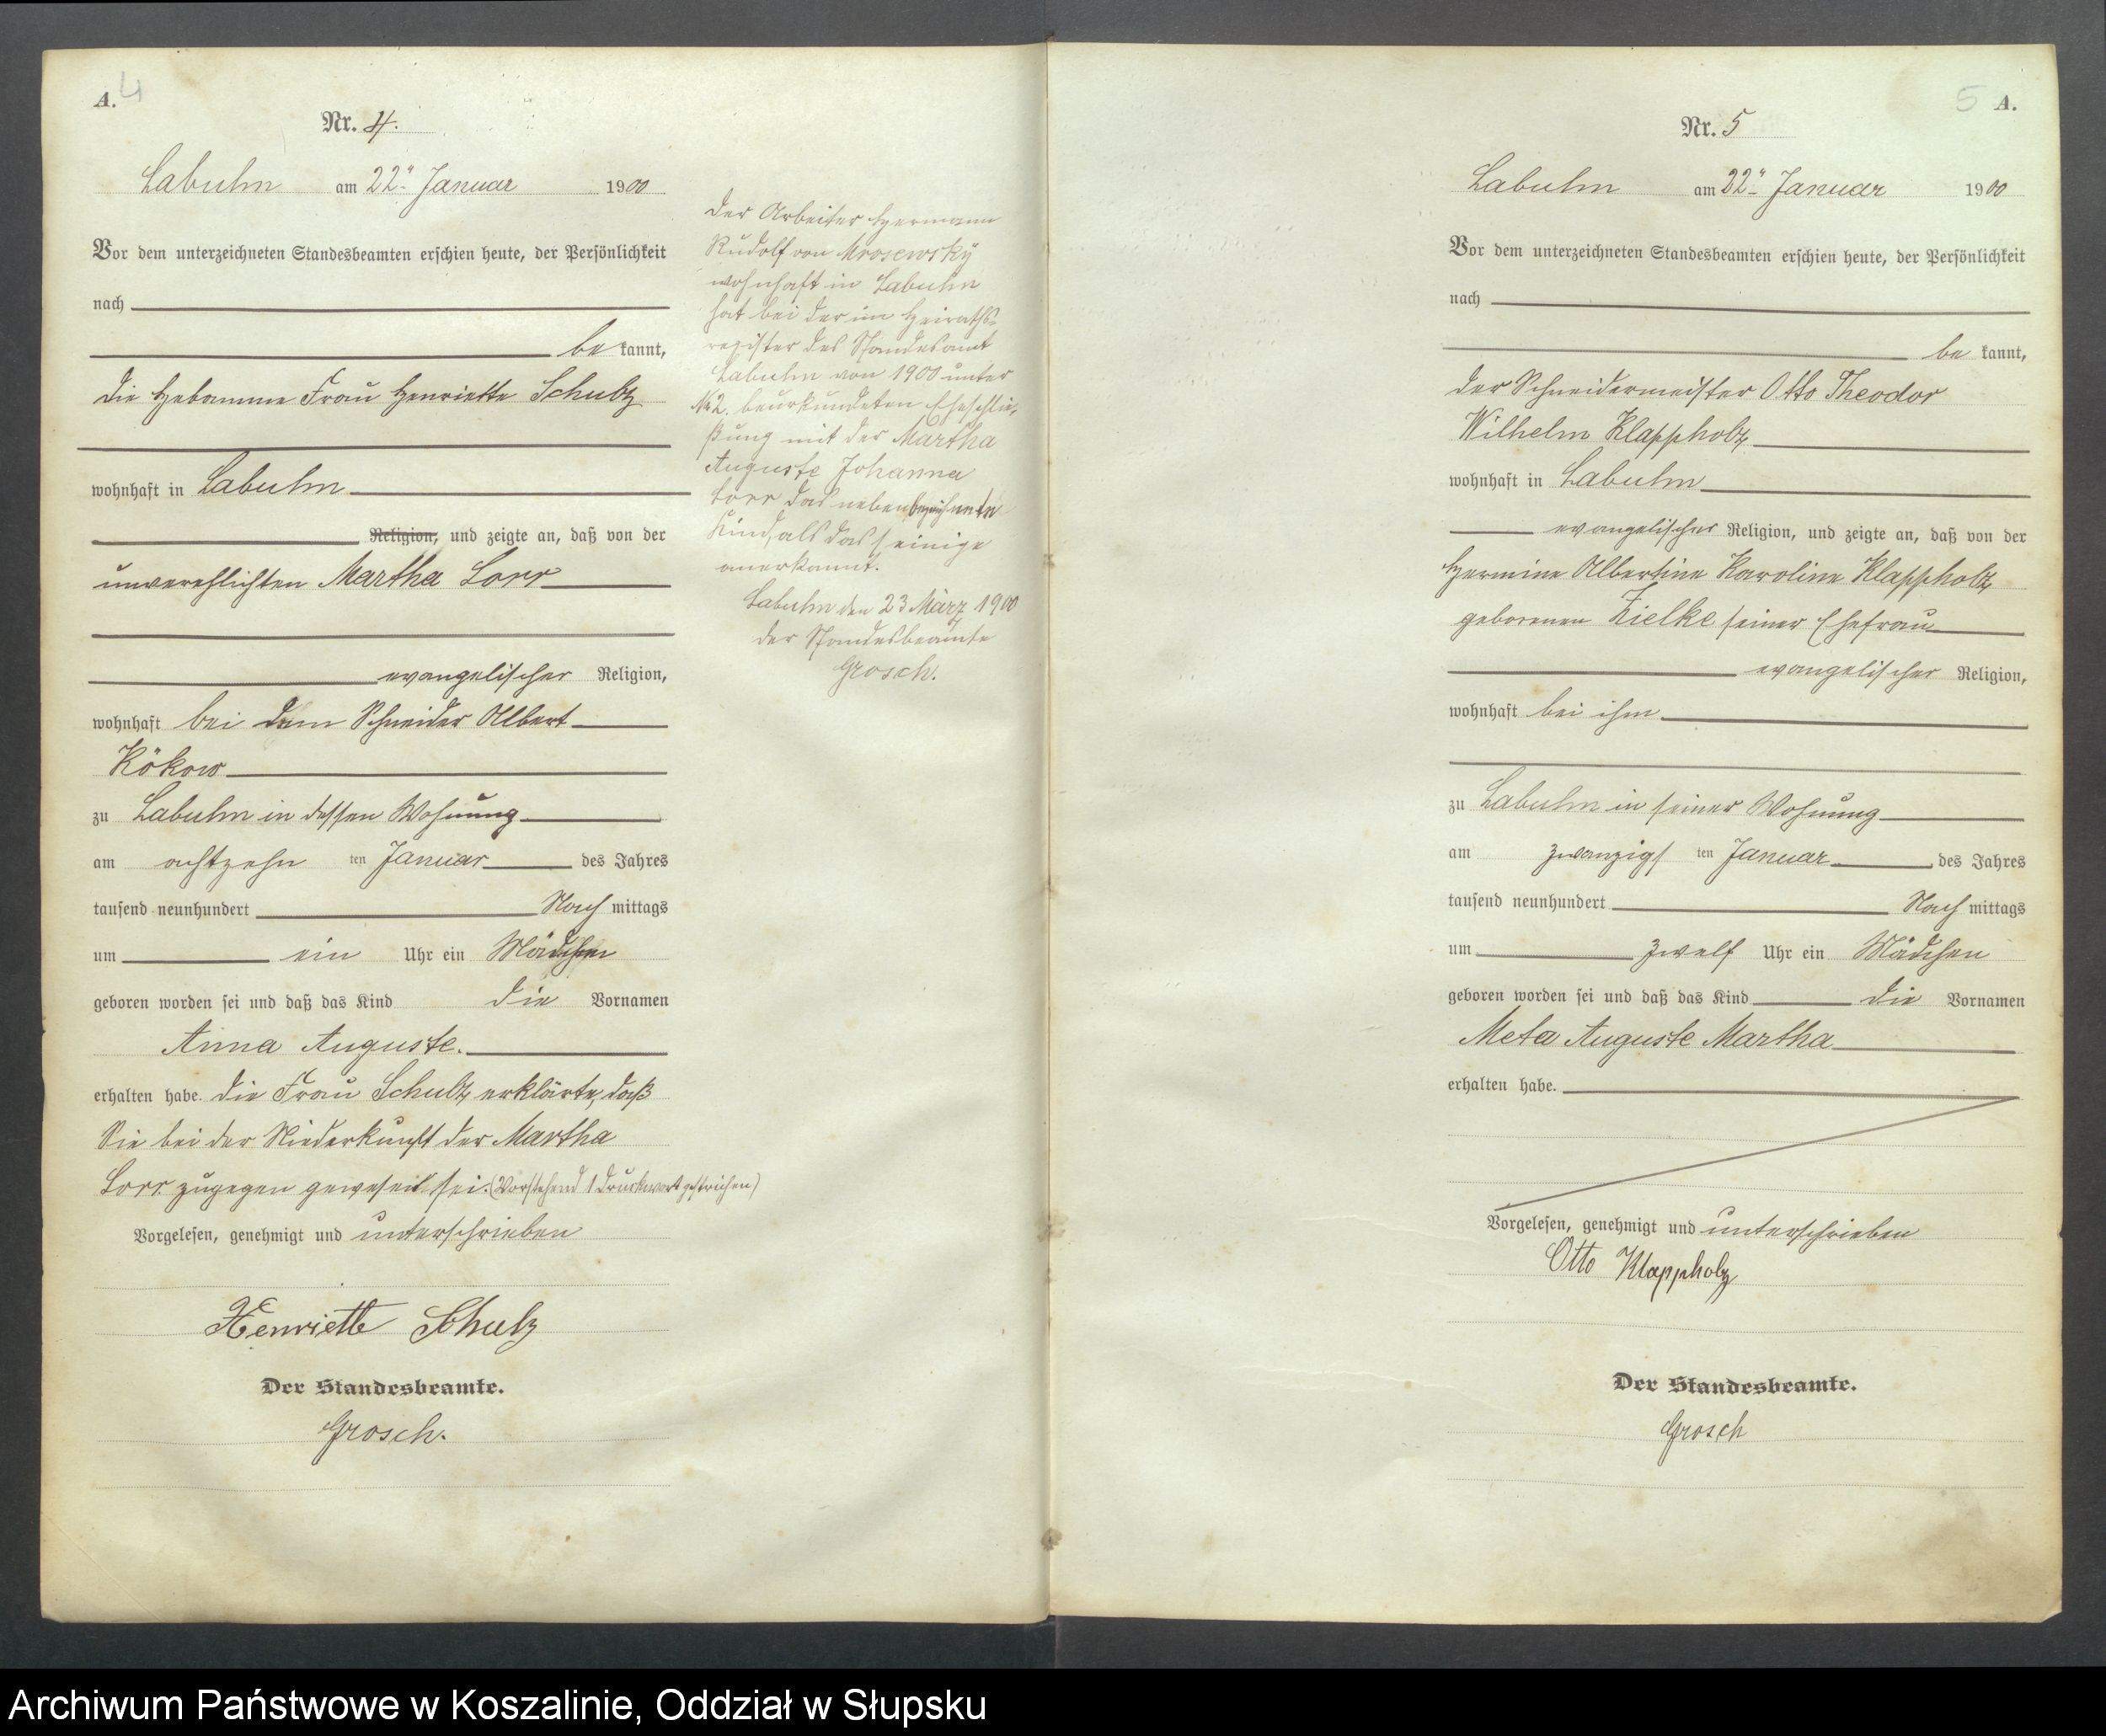 A. 4
Nr. 4.
Labuhn am 22ten Januar 1900
Vor dem unterzeichneten Standesbeamten erschien heute, der Persönlichkeit
nach
be kannt,
die Hebamme Frau Henriette Schulz
wohnhaft in Labuhn
Religion, und zeigte an, daß von der
unverehlichten Martha Lorr
evangelischer Religion,
wohnhaft bei dem Schneider Albert
Kökow
zu Labuhn in dessen Wohnung
am achtzehn ten Januar des Jahres
tausend neunhundert Nach mittags
um ein Uhr ein Mädchen
geboren worden sei und daß das Kind die Vornamen
Anna Auguste.
erhalten habe. die Frau Schulz erklärte, daß
Sie bei der Niederkunft der Martha
Lorr zugegen gewesen sei. (Vorstehend 1 Druckwort gestrichen)
Vorgelesen, genehmigt und unterschrieben
Henriette Schulz
Der Standesbeamte.
Grosch.
Der Arbeiter Hermann
Rudolf von Mrosewsky
wohnhaft in Labuhn
hat bei der im Heiraths-
register des Standesamt
Labuhn von 1900 unter
No 2. beurkundeten Eheschlie-
ßung mit der Martha
Auguste Johanna
Lorr das nebenbezeichnete
Kind, als das seinige
anerkannt.
Labuhn den 23 März 1900
der Standesbeamte
Grosch.
5 A.
Nr. 5
Labuhn am 22ten Januar 1900
Vor dem unterzeichneten Standesbeamten erschien heute, der Persönlichkeit
nach
be kannt,
der Schneidermeister Otto Theodor
Wilhelm Klappholz
wohnhaft in Labuhn
evangelischer Religion, und zeigte an, daß von der
Hermine Albertine Karoline Klappholz
geborenen Zielke seiner Ehefrau
evangelischer Religion,
wohnhaft bei ihm
zu Labuhn in seiner Wohnung
am zwanzigs ten Januar des Jahres
tausend neunhundert Nach mittags
um zwölf Uhr ein Mädchen
geboren worden sei und daß das Kind die Vornamen
Meta Auguste Martha
erhalten habe.
Vorgelesen, genehmigt und unterschrieben
Otto Klappholz
Der Standesbeamte.
Grosch
Archiwum Państwowe w Koszalinie, Oddział w Słupsku